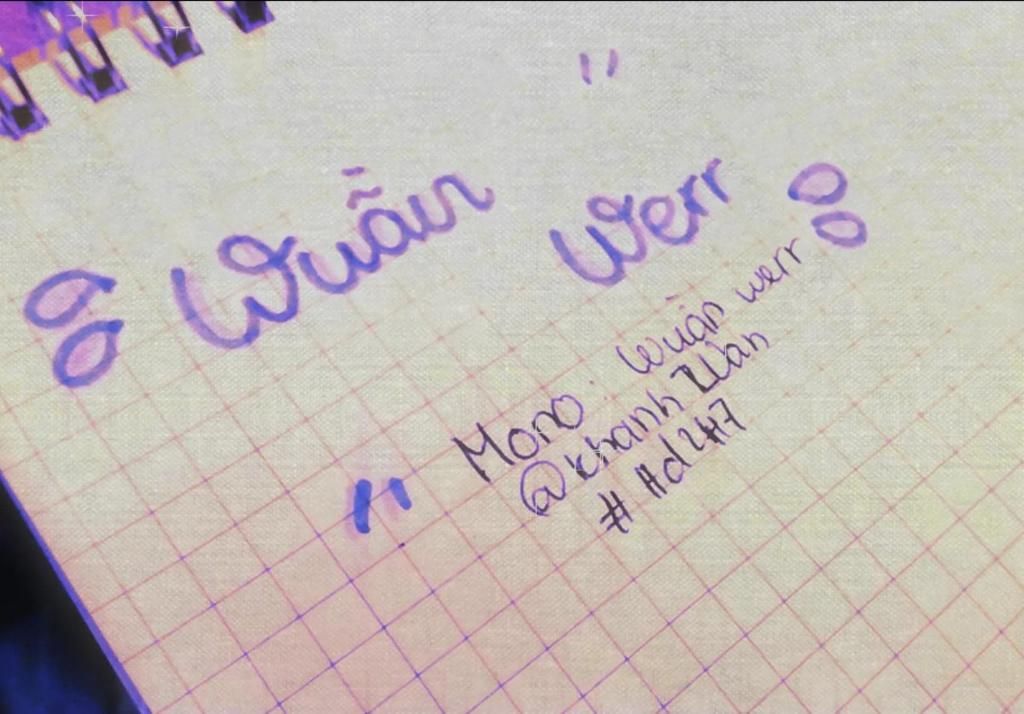 "
Wuẫn Werr
Mono. Wuần werr
"
@khanh Wan
# Hd247